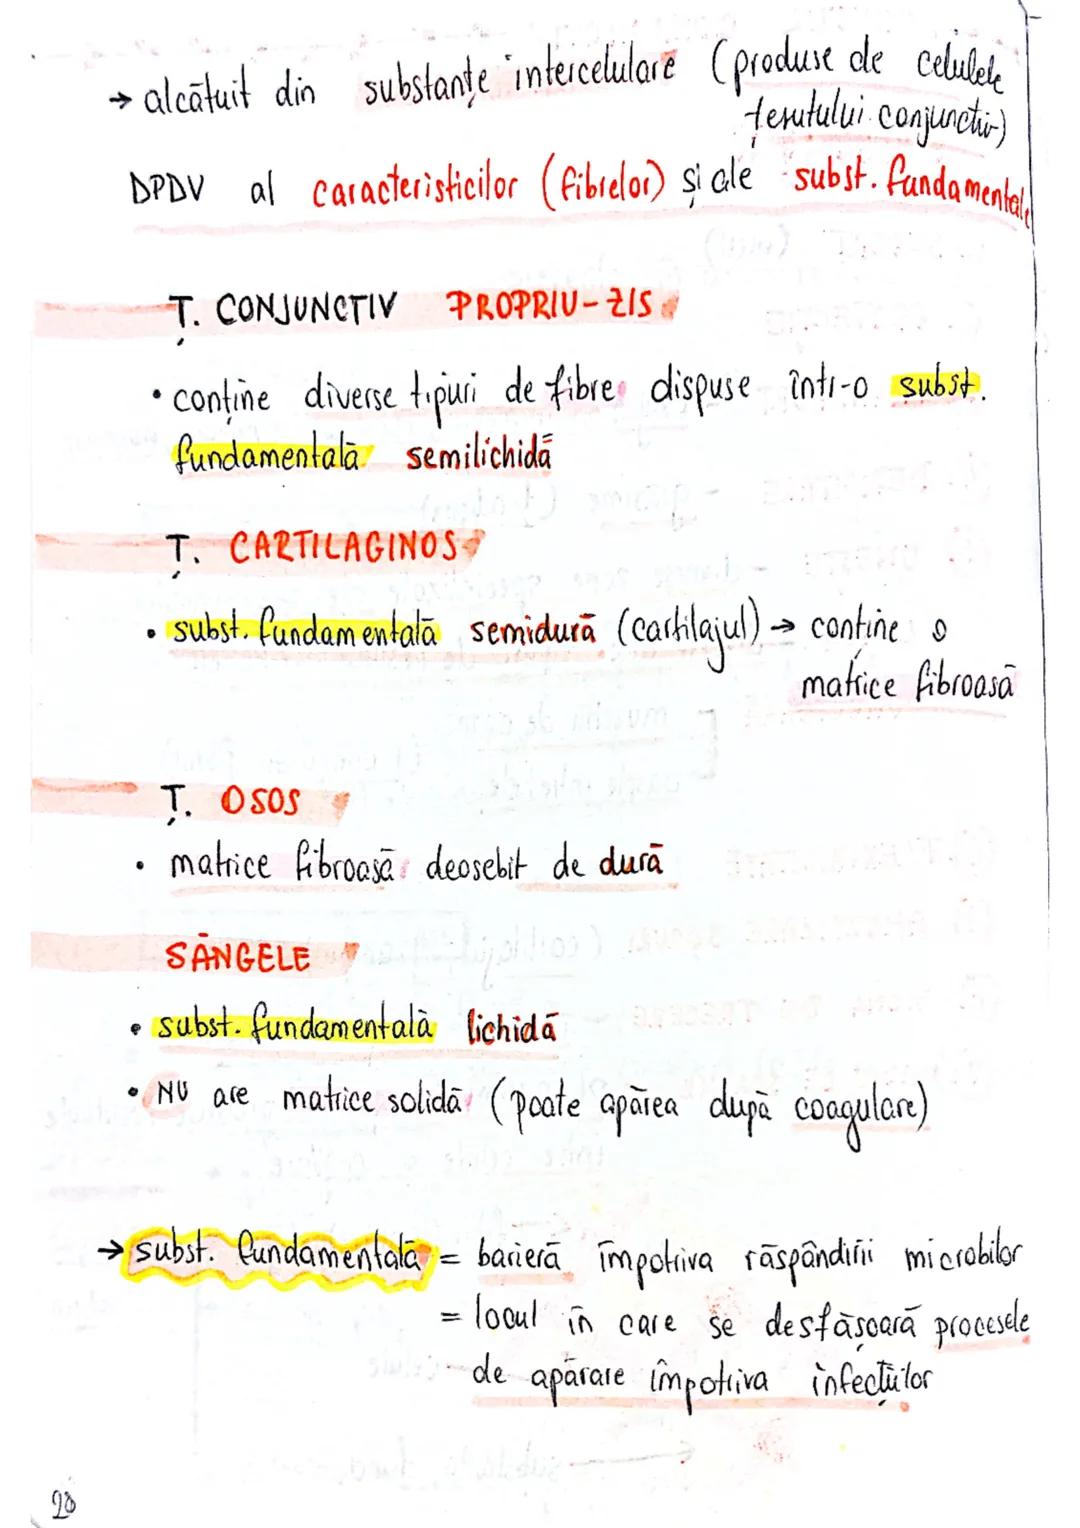 → alcătuit din substanțe intercelulare (produse de celulele
țesutului conjunctiv)
DPDV al caracteristicilor (fibrelor) și ale subst. fundamentale
Ț. CONJUNCTIV PROPRIU-ZIS
• conține diverse tipuri de fibre dispuse într-o subst.
fundamentală semilichidă
Ț. CARTILAGINOS
• subst. fundamentală semidură (cartilajul) → conține o
matrice fibroasă
Ț. OSOS
• matrice fibroasă deosebit de dură
SÂNGELE
• subst. fundamentală lichidă
• NU are matrice solidă (poate apărea după coagulare)
→ subst. fundamentală = barieră împotriva răspândirii microbilor
= locul în care se desfășoară procesele
de apărare împotriva infecțiilor